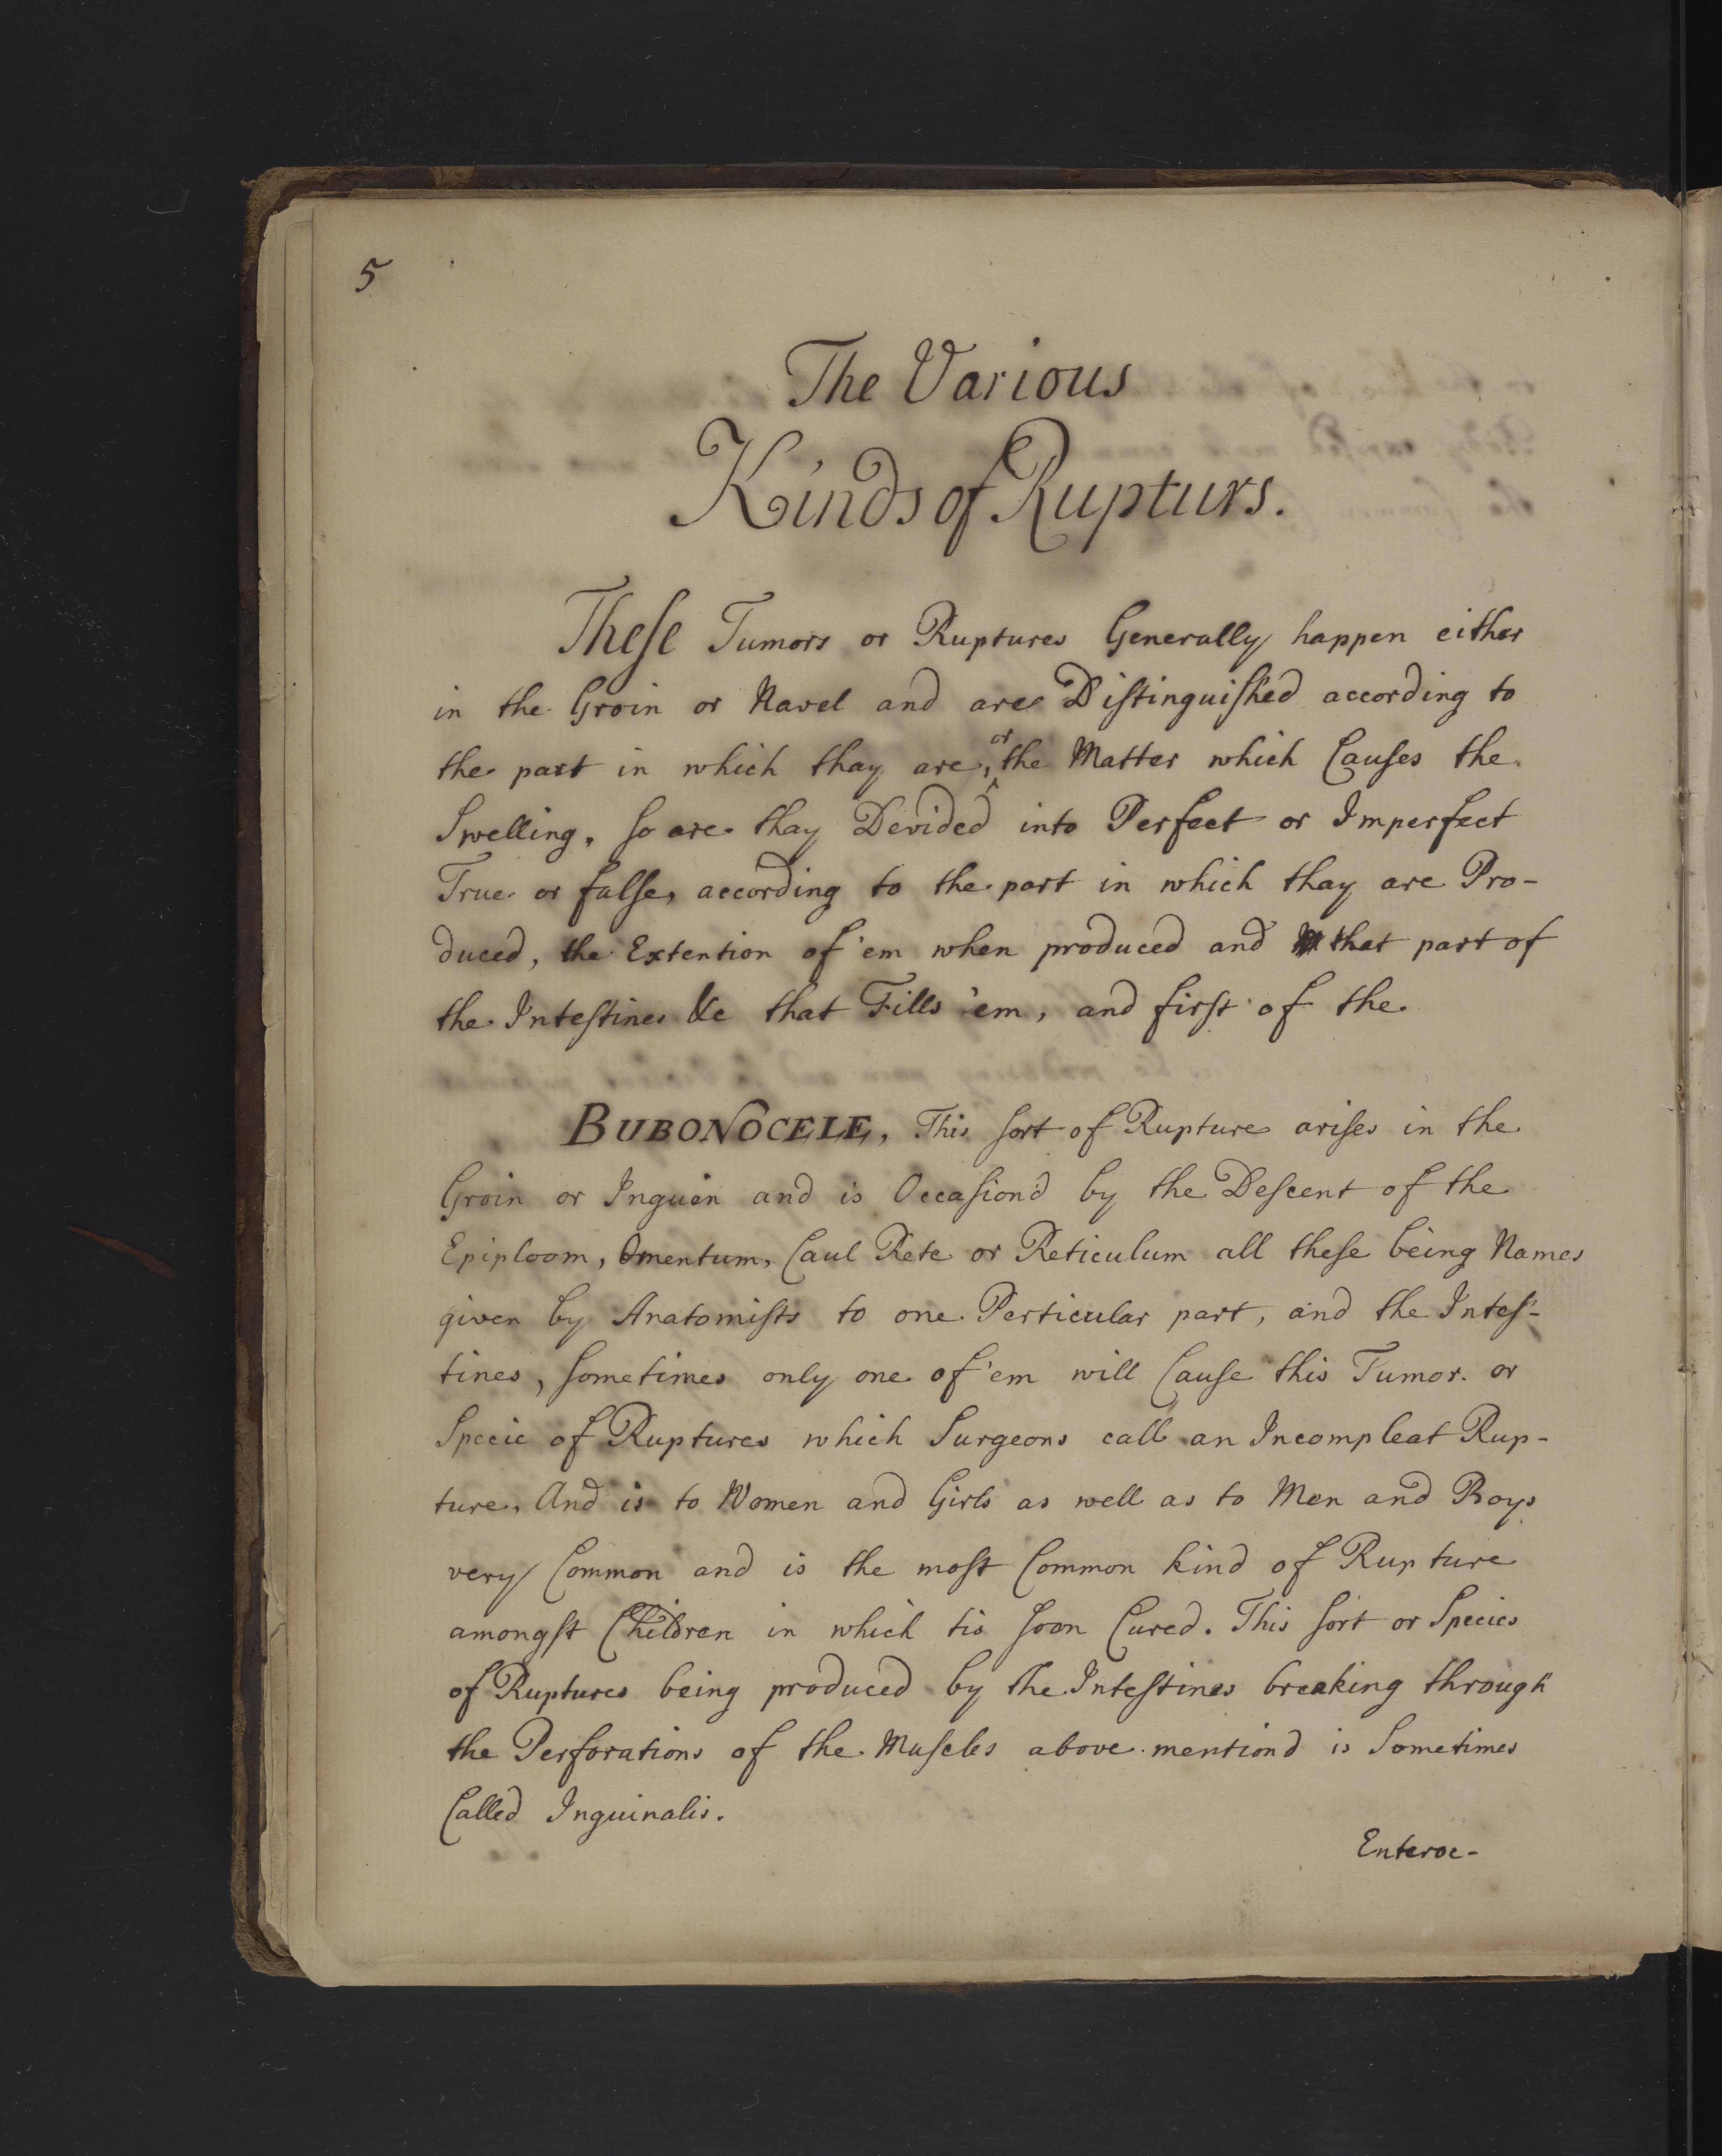 5
The Various
Kinds of Rupturs.
Theſe Tumors or Ruptures Generally happen either
in the Groin or Navel and are Diſtinguiſhed according to
the part in which thay are, or the Matter which Cauſes the
Swelling, ſo are thay Devided into Perfect or Imperfect
True or falſe, according to the part in which thay are Pro-
duced, the Extention of 'em when produced and that part of
the Inteſtines &c that Fills 'em, and firſt of the
BUBONOCELE, This ſort of Rupture ariſes in the
Groin or Inguen and is Occaſion'd by the Deſcent of the
Epiploom, Omentum, Caul Rete or Reticulum all theſe being Names
given by Anatomiſts to one Perticular part, and the Inteſ-
tines, ſometimes only one of 'em will Cauſe this Tumor. or
Specie of Ruptures which Surgeons call an Incompleat Rup-
ture, And is to Women and Girls as well as to Men and Boys
very Common and is the moſt Common kind of Rupture
amongſt Children in which tis ſoon Cured. This ſort or Species
of Ruptures being produced by the Inteſtines breaking through
the Perforations of the Muſcles above mention'd is Sometimes
Called Inguinalis.
Enteroc-